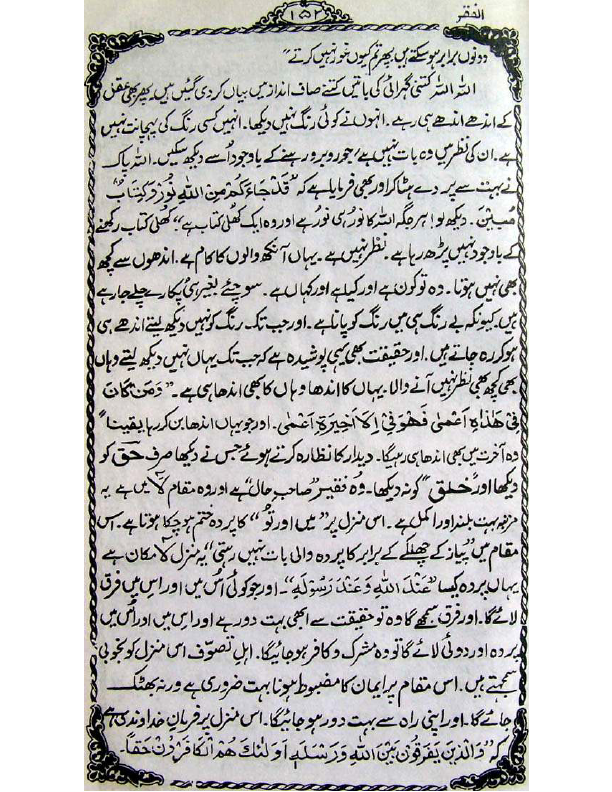 الفقر
۱۵۲
دونوں برابر ہو سکتے ہیں پھر تم کیوں غور نہیں کرتے"
اللہ اللہ کتنی گہرائی کی باتیں کتنے صاف انداز میں بیان کر دی گئیں ہیں پھر بھی عقل
کے اندھے اندھے ہی رہے۔ انہوں نے کوئی رنگ نہیں دیکھا۔ انہیں کسی رنگ کی پہچانت نہیں
ہے۔ ان کی نظر میں وہ بات نہیں ہے، جو روبرو رہنے کے باوجود اُسے دیکھ سکیں۔ اللہ پاک
نے بہت سے پردے ہٹا کر اور بھی فرمایا ہے کہ "قَدْ جَاءَكُمْ مِنَ اللهِ نُورٌ وَكِتَابٌ
مُبِینٌ۔ دیکھ لو! ہر جگہ اللہ کا نور ہی نور ہے اور وہ ایک کھلی کتاب ہے" کھلی کتاب رکھنے
کے باوجود نہیں پڑھ رہا ہے۔ نظر نہیں ہے۔ یہاں آنکھ والوں کا کام ہے۔ اندھوں سے کچھ
بھی نہیں ہوتا۔ وہ تو کون ہے اور کیا ہے اور کہاں ہے۔ سوچے بغیر ہی پکارے چلے جا رہے
ہیں کیونکہ بے رنگ ہی میں رنگ کو پانا ہے۔ اور جب تک رنگ کو نہیں دیکھ لیتے اندھے ہی
ہو کر رہ جاتے ہیں۔ اور حقیقت بھی یہی پوشیدہ ہے کہ جب تک یہاں نہیں دیکھ لیتے وہاں
بھی کچھ بھی نظر نہیں آنے والا۔ یہاں کا اندھا وہاں کا بھی اندھا ہی ہے۔ "وَمَنْ كَانَ
فِیْ هٰذِهٖ اَعْمٰی فَهُوَ فِیْ الْاٰخِیرَةِ اَعْمٰی۔ اور جو یہاں اندھا بن کر رہا یقیناً"
وہ آخرت میں بھی اندھا ہی رہیگا۔ دیدار کا نظارہ کرتے ہوئے جس نے دیکھا صرف حق کو
دیکھا اور "خلق" کو نہ دیکھا۔ وہ فقیر "صاحبِ حال" ہے اور وہ مقام لَا میں ہے یہ
مرتبہ بہت بلند اور اکمل ہے۔ اس منزل پر "میں اور تُو" کا پردہ ختم ہو چکا ہوتا ہے۔ اس
مقام میں "پیاز کے چھلکے کے برابر کا پردہ والی بات نہیں رہتی" یہ منزل لامکان ہے
یہاں پردہ کیسا "عَنْدَ اللهِ وَعَنْدَ رَسُوْلِهٖ"۔ اور جو کوئی اُس میں اور اِس میں فرق
لائے گا۔ اور فرق سمجھے گا وہ تو حقیقت سے ابھی بہت دور ہے اور اِس میں اور اُس میں
پردہ اور دوئی لائے گا تو وہ مشرک و کافر ہو جائیگا۔ اہلِ تصوّف اس منزل کو بخوبی
سمجھتے ہیں۔ اس مقام پر ایمان کا مضبوط ہونا بہت ضروری ہے ورنہ بھٹک
جائے گا۔ اور اپنی راہ سے بہت دور ہو جائیگا۔ اس منزل پر فرمانِ خداوندی ہے
کہ "وَالَّذِیْنَ یُفَرِّقُوْنَ بَیْنَ اللهِ وَرُسُلِهٖ اُولٰئِكَ هُمُ الْكَافِرُوْنَ حَقّاً۔